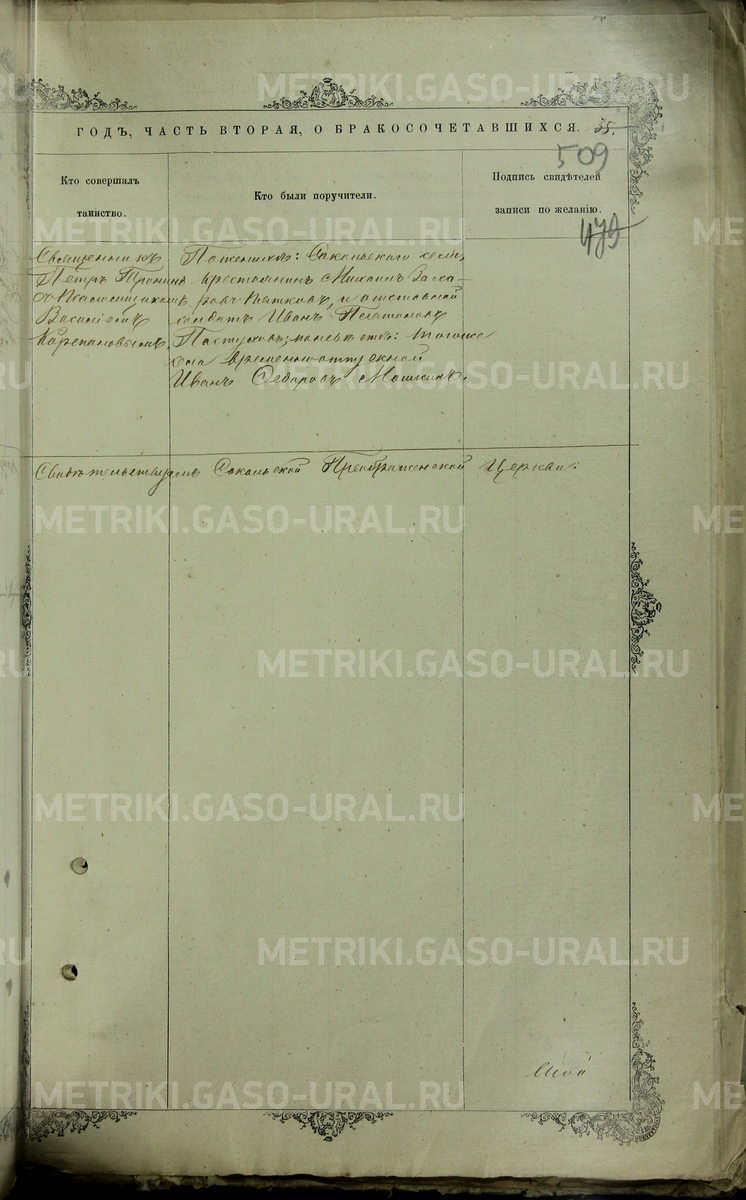 METRIKI.GASO-URAL.RU METRIKI.GASO-URAL.RU
ГОДЪ, ЧАСТЬ ВТОРАЯ, О БРАКОСОЧЕТАВШИХСЯ. 35.
509
Кто совершалъ таинство.
Кто были поручители.
Подпись свидѣтелей записи по желанію.
479
METRIKI.GASO-URAL.RU
Священникъ
Петръ
съ Псаломщикомъ
Василіемъ
Карепановымъ.
По женихѣ: Сокольскаго села,
крестьянинъ Михаилъ
и отставной
солдатъ Иванъ Платоновъ
Пастуховъ; по невѣстѣ: того же
села временноотпускной
Иванъ Ѳедоровъ Мошкинъ.
METRIKI.GASO-URAL.RU
Свидѣтельствуемъ Сокольской Преображенской Церкви:
METRIKI.GASO-URAL.RU
METRIKI.GASO-URAL.RU
METRIKI.GASO-URAL.RU
METRIKI.GASO-URAL.RU
METRIKI.GASO-URAL.RU